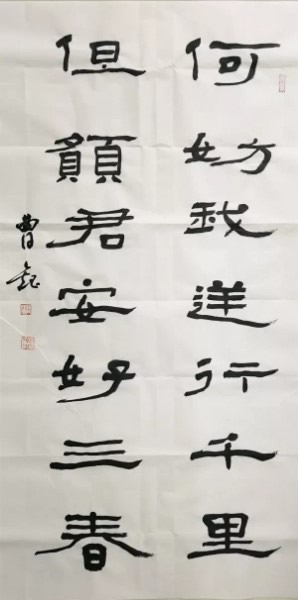 何妨我逆行千里
但願君安好三春
曹